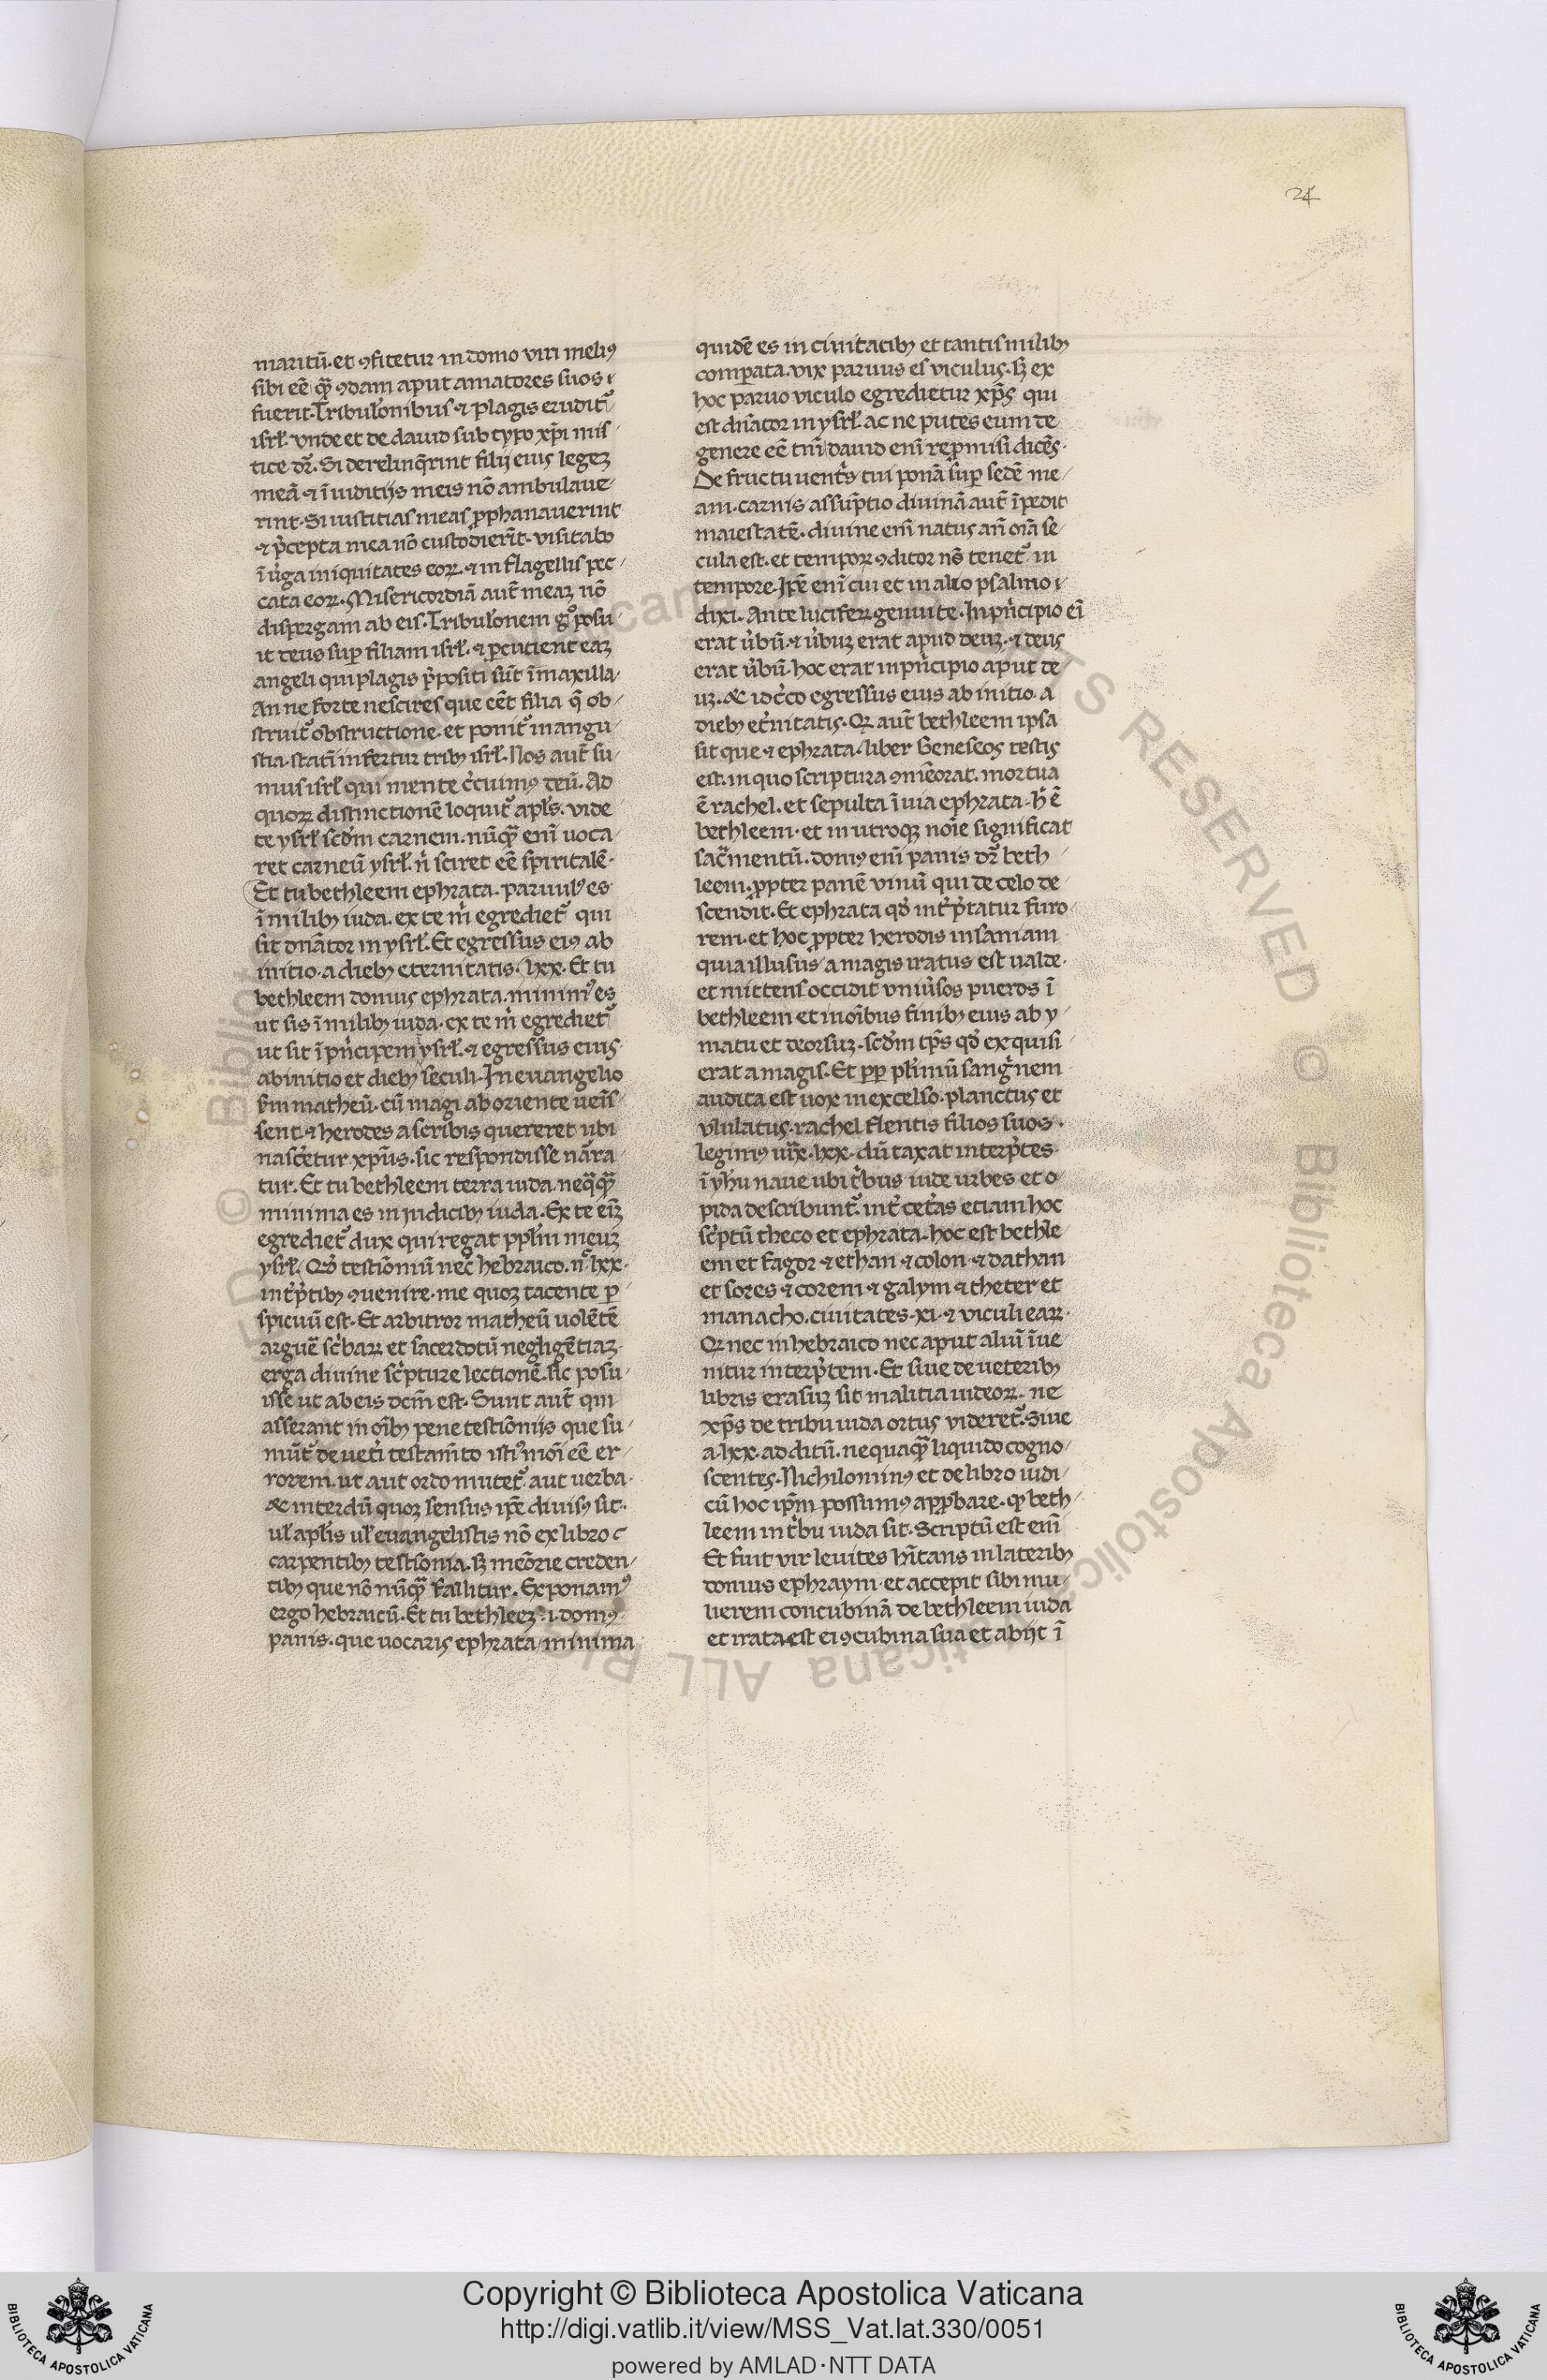 24
maritū. et ꝯfitetur in domo viri meliꝰ
sibi eē qͣꝫ ꝯdam aput amatores suos
fuerit. Tribul̓onibus ⁊ plagis eruditᷣ
isrl̓. vnde et de dauid sub typo xp̄i mis
tice dr̄. Si derelinq̄rint filij eius legeꝫ
meā ⁊ ī iuditijs meis nō ambulaue
rint. Si iustitias meas ꝓphanauerint
⁊ p̓cepta mea nō custodierīt. visitabo
ī v̓ga iniquitates eoꝝ. ⁊ in flagellis pec
cata eoꝝ. Misericordiā aut̄ meaꝫ nō
dispergam ab eis. Tribul̓onem gͦ posu
it deus suꝑ filiam isrl̓. ⁊ ꝑcutient eaꝫ
angeli qui plagis p̓positi sūt ī maxilla.
An ne forte nescires que eēt filia q̄ ob
struitᷣ obstructione. et ponitᷣ in angu
stia. statī infertur tribꝫ isrl̓. Nos aut̄ su
mus isrl̓ qui mente c̓nimꝰ deū. Ad
quoꝝ distinctionē loquitᷣ apl̓s. vide
te ysrl̓ scd̓m carnem. nūqͣꝫ enī uoca
ret carneū ysrl̓. n̓ sciret eē spiritalē.
Et tu bethleem ephrata. paruulꝰ es
ī milibꝫ iuda. ex te m̓ egredietᷣ qui
sit dn̄ator in ysrl̓. Et egressus eiꝰ ab
initio. a diebꝫ eternitatis. lxx. Et tu
bethleem domus ephrata. minimꝰ es
ut sis ī milibꝫ iuda. ex te m̓ egredietᷣ
ut sit ī pn̓cipem ysrl̓. ⁊ egressus eius
ab initio et diebꝫ seculi. In euangelio
s̄m matheū. cū magi ab oriente uenīs
sent. ⁊ herodes a scribis quereret ubi
nascēetur xpūs. sic respondisse nāra
tur. Et tu bethleem terra iuda. neqͣqͣꝫ
minima es in iudicibꝫ iuda. Ex te eīꝫ
egredietᷣ dux qui regat ppl̓m meuꝫ
ysrl̓. Qd̓ testiōniū nec̄ hebraico. nͨ lxx.
int̓p̓tibꝫ ꝯuenire. me quoꝫ tacente ꝑ
spicuū est. Et arbitror matheū uolētē
arguē sc̓baꝝ et sacerdotū negligētiaꝫ
erga diuine sc̓pture lectionē. sic posu
isse ut ab eis dcm̄ est. Sunt aut̄ qui
asserant in oībꝫ pene testiōnijs que su
mūtᷣ de uet̓i testam̄to istiꝰmōi eē er
rorem. ut aut ordo mutetᷣ. aut uerba.
&c interdū quoꝫ sensus ip̄e diuisꝰ sit.
ul̓ apl̓is ul̓ euangelistis nō ex libro c
carpentibꝫ testiōnia. sꝫ meōrie creden
tibꝫ que nō nūqͣꝫ fallitur. Exponamꝰ
ergo hebraicū. Et tu bethleeꝫ .i. domꝰ
panis. que uocaris ephrata minima
quidē es in ciuitatibꝫ et tantis milibꝫ
comꝑata. vix paruus es viculus. sꝫ ex
hoc paruo viculo egredietur xp̄s qui
est dn̄ator in ysrl̓. ac ne putes eum de
genere eē tm̄ dauid enī repromisi dicēs.
De fructu uent̓s tui ponā suꝑ sedē me
am. carnis assūptio diuinā aut̄ īpedit
maiestatē. diuine enī natus an̄ oīa se
cula est. et tempoꝝ ꝯditor nō tenetᷣ in
tempore. Ip̄e enī cui et in alio psalmo
dixi. Ante lucifeꝝ genui te. In pn̓cipio eī
erat v̓bū. ⁊ v̓buꝫ erat apud deuꝫ. ⁊ deus
erat v̓bū. hoc erat in pn̓cipio aput de
uꝫ. &c idc̓co egressus eius ab initio. a
diebꝫ et̓nitatis. Qꝫ aut̄ bethleem ipsa
sit que ⁊ ephrata. liber Geneseos testis
est. in quo scriptura ꝯmēorat. mortua
ē rachel. et sepulta ī uia ephrata. h̓ ē
bethleem. et in utroqꝫ noīe significat
sacͣmentū. domꝰ enī panis dr̄ beth
leem. ꝓpter panē viuū qui de celo de
scendit. Et ephrata qd̓ int̓p̓tatur furo
rem. et hoc ꝓpter herodis insaniam
quia illusus a magis iratus est ualde.
et mittens occidit vniu̓sos pueros ī
bethleem et in oībus finibꝫ eius ab y
matu et deorsuꝫ. scd̓m tp̄s qd̓ exquisi
erat a magis. Et ꝓp pl̓imū sanguͥnem
audita est uox in excelso. planctus et
vlulatus. rachel flentis filios suos.
legimꝰ iuͣx lxx. dū taxat interp̓tes
ī yh̓u naue ubi t̓bus iude urbes et o
pida describuntᷣ. int̓ cet̓as etiam hoc
sc̓ptū theco et ephrata. hoc est bethle
em et fagor ⁊ ethan ⁊ colon ⁊ dathan
et sores ⁊ corem ⁊ galym ⁊ theter et
manacho. ciuitates. xi. ⁊ viculi eaꝝ.
Qꝫ nec in hebraico nec aput aliū īue
nitur interp̓tem. Et siue de ueteribꝫ
libris erasuꝫ sit malitia iudeoꝝ. ne
xp̄s de tribu iuda ortus videretᷣ. Siue
a. lxx. additū. nequaqͣꝫ liquido cogno
scentes. Nichilominꝰ et de libro iudi
cū hoc ip̄m possumꝰ apꝓbare. ꝙ beth
leem in t̓bu iuda sit. Scriptū est enī
Et fuit vir leuites hītans in lateribꝫ
domus ephraym. et accepit sibi mu
lierem concubinā de bethleem iuda
et irata est ei ꝯcubina sua et abijt ī
Copyright © Biblioteca Apostolica Vaticana
http://digi.vatlib.it/view/MSS_Vat.lat.330/0051
powered by AMLAD·NTT DATA
BIBLIOTECA APOSTOLICA VATICANA
BIBLIOTECA APOSTOLICA VATICANA